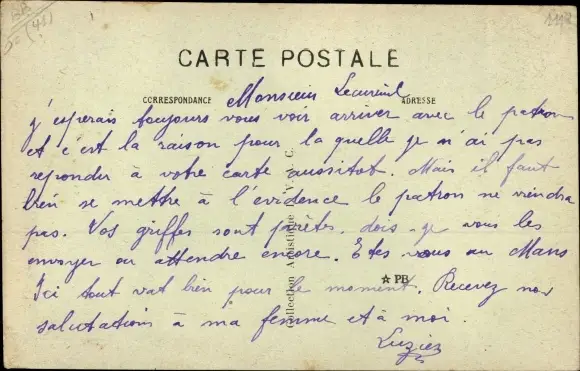 CARTE POSTALE
CORRESPONDANCE
ADRESSE
Monsieur Lecureuil
j'esperais toujours vous voir arriver avec le patron
et c'est la raison pour la quelle je n'ai pas
repondu à votre carte aussitot. Mais il faut
bien se mettre à l'évidence le patron ne viendra
pas. Vos griffes sont pretes. dois-je vous les
envoyer ou attendre encore. Etes vous au Mans
Ici tout vat bien pour le moment. Recevez nos
salutations à ma femme et à moi.
Luziez
Collection Artistique V. C.
☆ PB
(48)